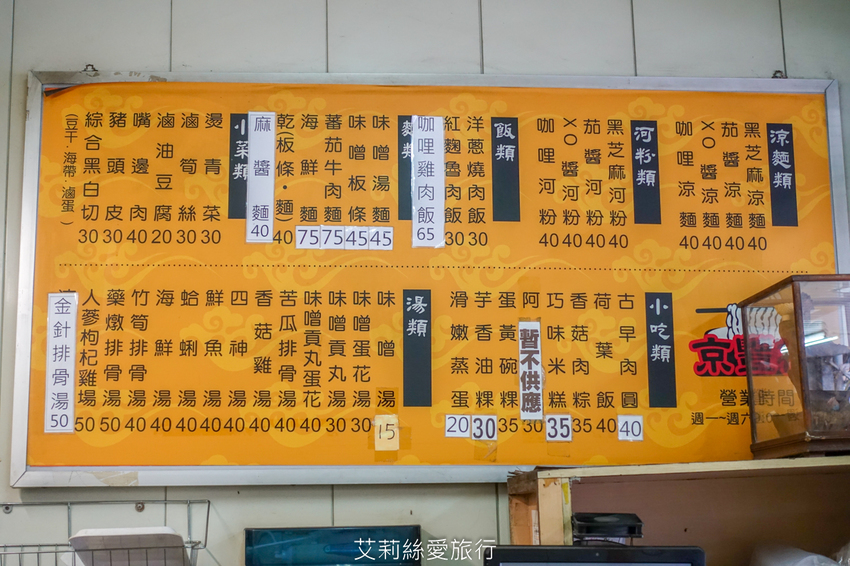 涼麵類
黑芝麻涼麵40
茄醬涼麵40
XO醬涼麵40
咖哩涼麵40
河粉類
黑芝麻河粉40
茄醬河粉40
XO醬河粉40
咖哩河粉40
飯類
洋蔥燒肉飯30
紅麴魯肉飯30
咖哩雞肉飯65
麵類
味噌湯麵45
味噌板條45
蕃茄牛肉麵75
海鮮麵75
乾(板條·麵)40
麻醬麵40
小菜類
燙青菜30
滷筍絲30
滷油豆腐20
嘴邊肉40
豬頭皮30
綜合黑白切30
(豆干·海帶·滷蛋)
小吃類
古早肉圓40
荷葉飯40
香菇肉粽35
巧味米糕35
阿
暫不供應
30
蛋黃碗粿35
芋香油粿30
滑嫩蒸蛋20
湯類
味噌湯15
味噌蛋花湯30
味噌貢丸湯30
味噌貢丸蛋花湯40
苦瓜排骨湯40
香菇雞湯40
四神湯40
鮮魚湯40
蛤蜊湯40
海鮮湯40
竹筍排骨湯40
藥燉排骨湯50
人蔘枸杞雞場50
金針排骨湯50
京
營業時間
週一~週六
艾莉絲愛旅行